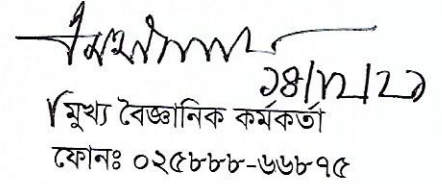 ১৪/১২/২১
মুখ্য বৈজ্ঞানিক কর্মকর্তা
ফোনঃ ০২৫৮৮৮-৬৬৮৭৫